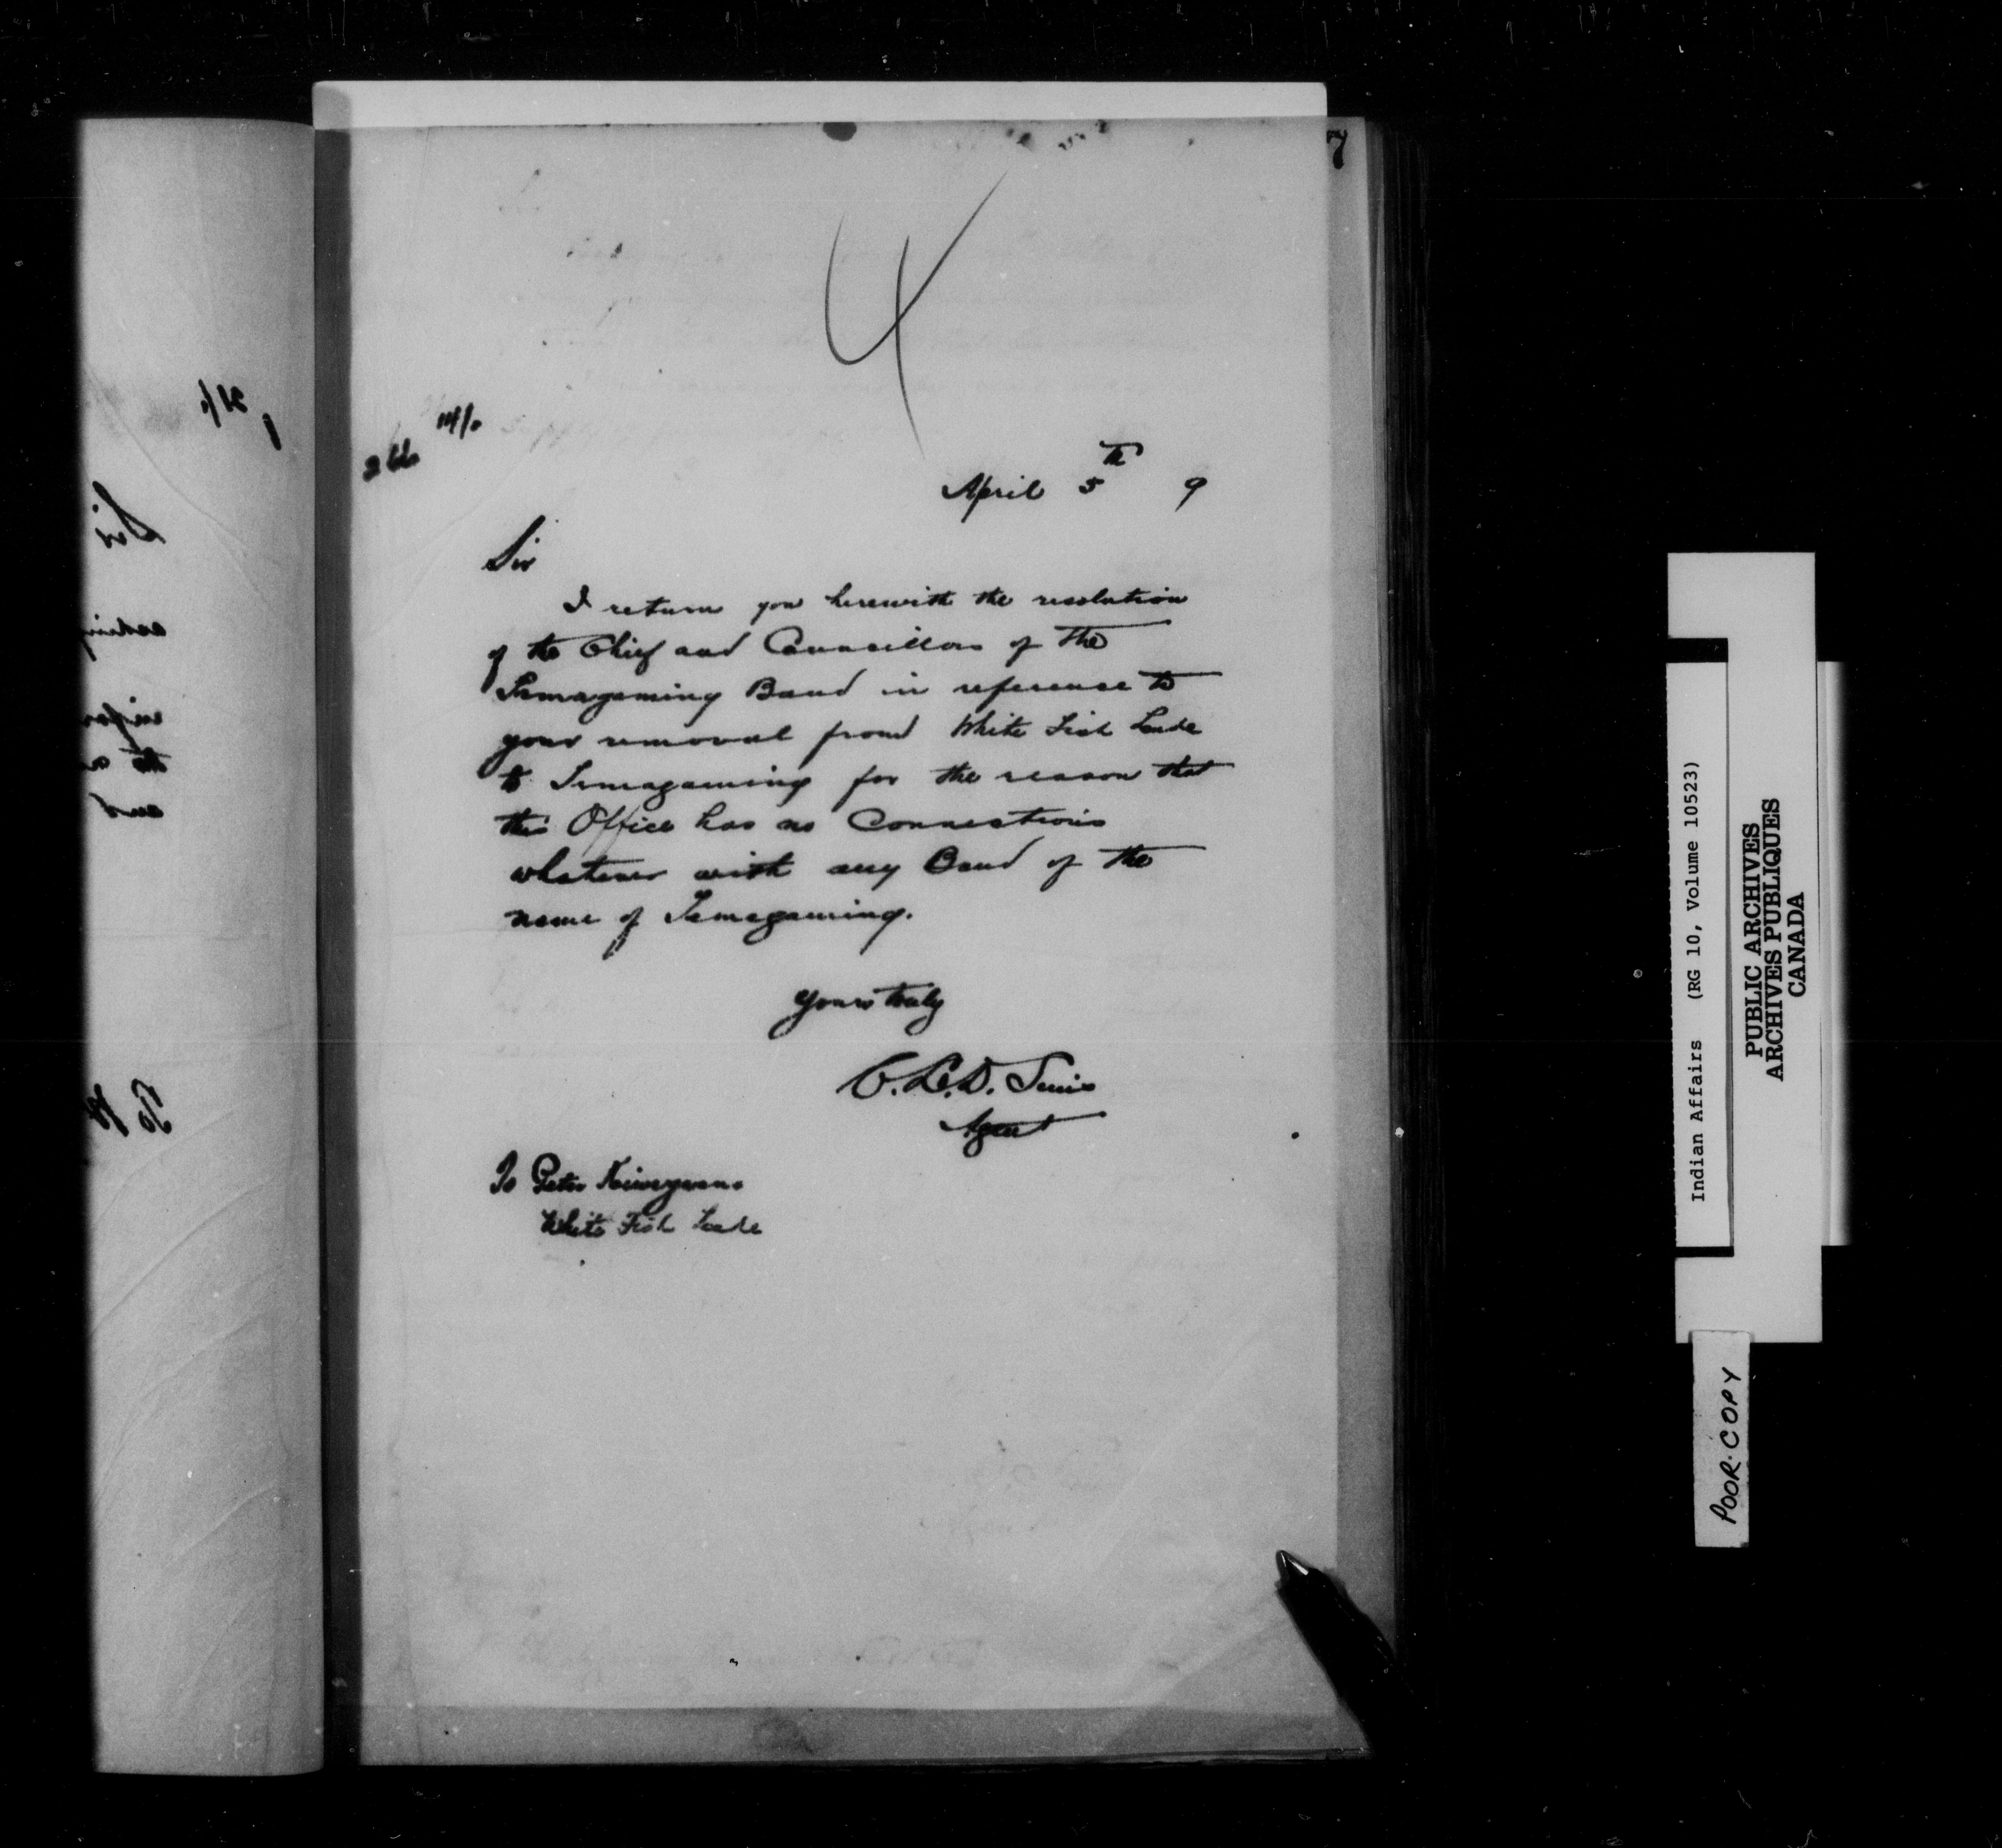 7
4
266 14/0
April 5th 9
Sir
I return you herewith the resolution
of the Chief and Councillors of the
Temagaming Band in reference to
your removal from White Fish Lake
to Temagaming for the reason that
this Office has no Connections
whatever with any Band of the
name of Temagaming.
Yours truly
C. L. D. Sims
Agent
To Peter
White Fish Lake
Indian Affairs (RG 10, Volume 10523)
PUBLIC ARCHIVES
ARCHIVES PUBLIQUES
CANADA
POOR COPY